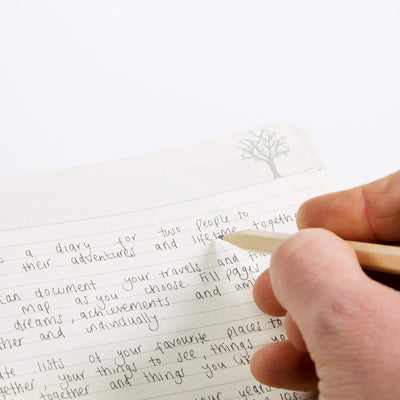 s a diary for two people to
their adventures and lifetime togeth
can document your travels and th
map as you choose. Fill pages
dreams, achievements and
ther and individually.
ate lists of your favourite places to
gether, your things to see, things yo
together and things you
your years